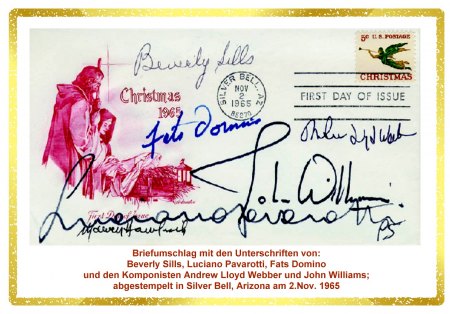 Beverly Sills
5c U.S. POSTAGE
CHRISTMAS
SILVER BELL, AZ
NOV
2
1965
FIRST DAY OF ISSUE
Christmas
1965
Fats Domino
John Williams
Luciano Pavarotti
First Day of Issue
Briefumschlag mit den Unterschriften von:
Beverly Sills, Luciano Pavarotti, Fats Domino
und den Komponisten Andrew Lloyd Webber und John Williams;
abgestempelt in Silver Bell, Arizona am 2.Nov. 1965